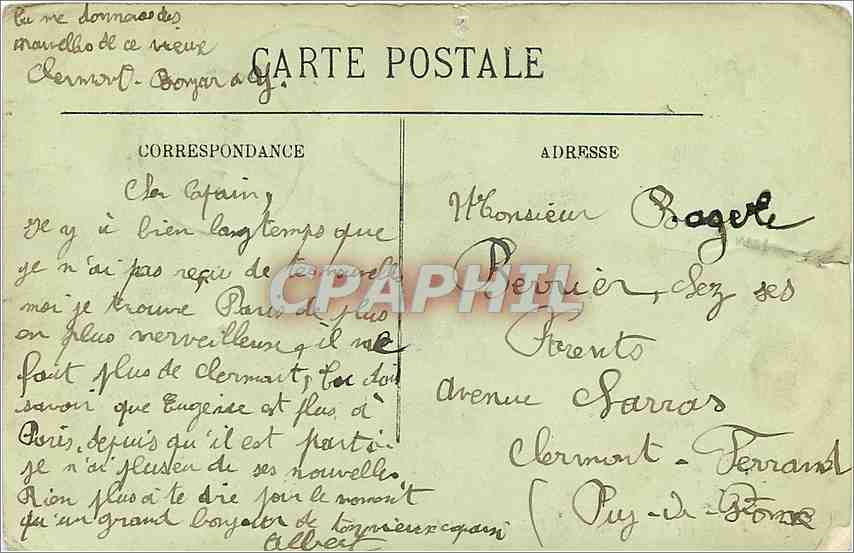 tu me donneras des
nouvelles de ce vieux
Clermont - Bonjour à
CARTE POSTALE
CORRESPONDANCE
ADRESSE
Cher Copain,
Il y à bien longtemps que
je n'ai pas reçu de tes nouvelle
moi je trouve Paris de plus
en plus merveilleuse, il me
faut plus de Clermont, tu dois
savoir que Eugène est plus à
Paris, depuis qu'il est parti
je n'ai plus eu de ses nouvelles
Rien plus à te dire pour le moment
qu'un grand bonjour de ton vieux copain
Albert
Monsieur Roger
Perrier, chez ses
Parents
avenue Carras
Clermont-Ferrand
(Puy-de-Dôme
CPAPHIL